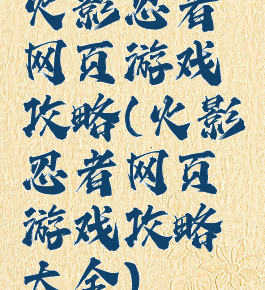 火影忍者
网页游戏
攻略(火影
忍者网页
游戏攻略
大全)